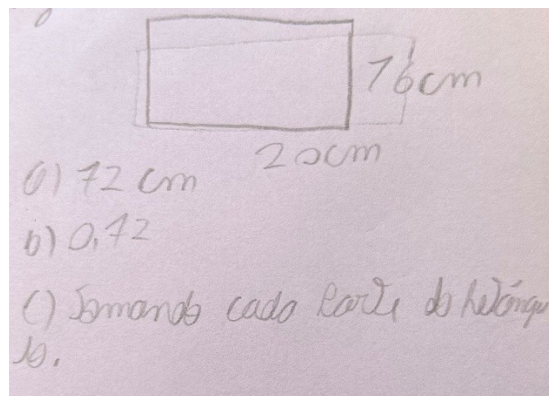 16cm
20cm
a) 72 cm
b) 0,72
c) Somando cada parte do retângu
lo.